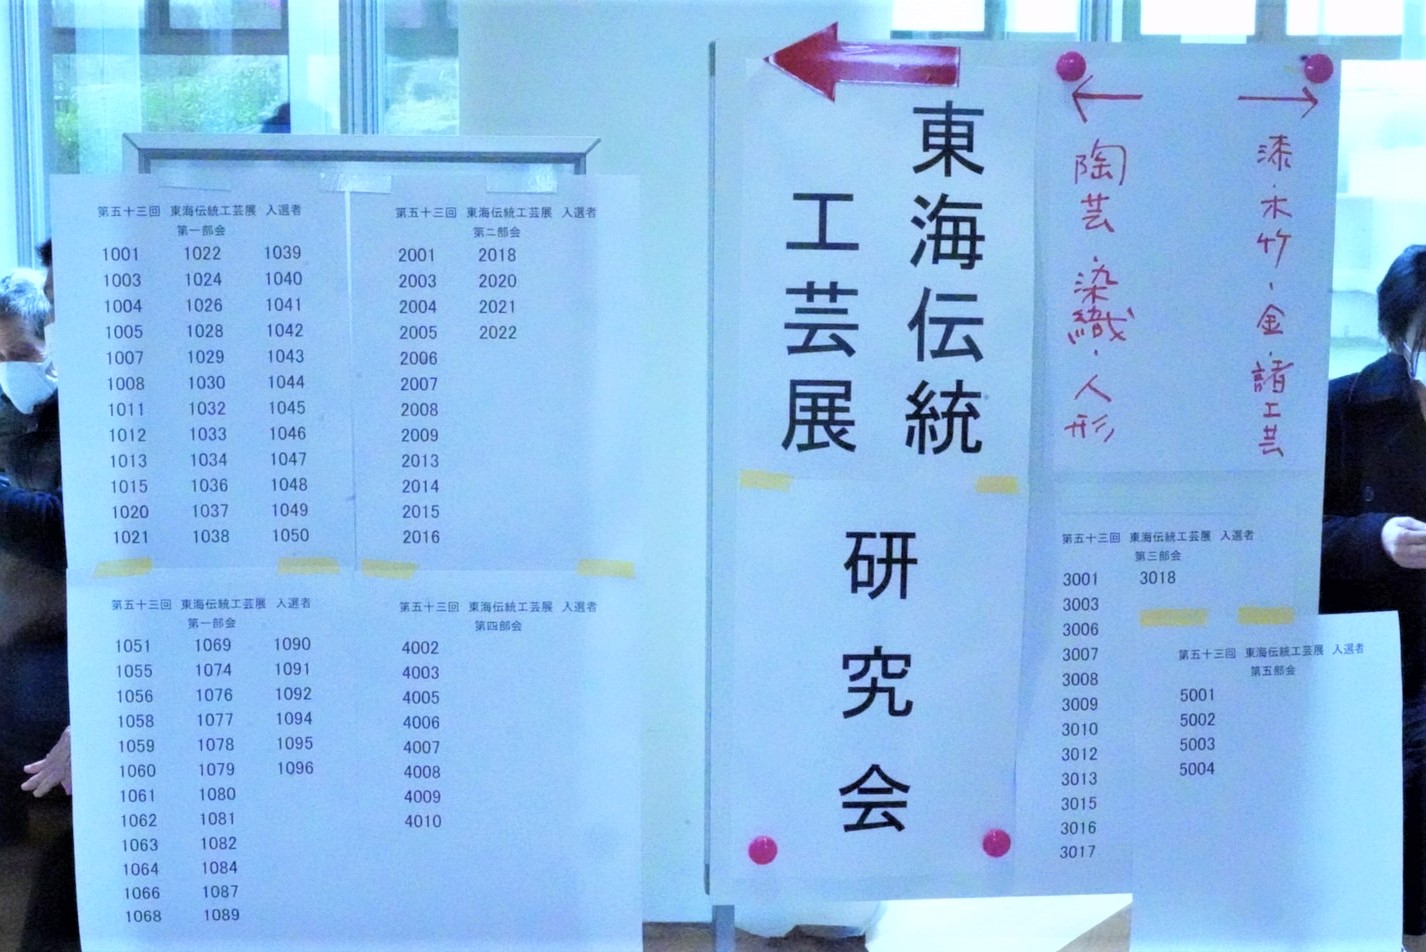 第五十三回 東海伝統工芸展 入選者
第一部会
1001 1022 1039
1003 1024 1040
1004 1026 1041
1005 1028 1042
1007 1029 1043
1008 1030 1044
1011 1032 1045
1012 1033 1046
1013 1034 1047
1015 1036 1048
1020 1037 1049
1021 1038 1050
第五十三回 東海伝統工芸展 入選者
第二部会
2001 2018
2003 2020
2004 2021
2005 2022
2006
2007
2008
2009
2013
2014
2015
2016
第五十三回 東海伝統工芸展 入選者
第一部会
1051 1069 1090
1055 1074 1091
1056 1076 1092
1058 1077 1094
1059 1078 1095
1060 1079 1096
1061 1080
1062 1081
1063 1082
1064 1084
1066 1087
1068 1089
第五十三回 東海伝統工芸展 入選者
第四部会
4002
4003
4005
4006
4007
4008
4009
4010
東海伝統
工芸展
研究会
漆・木竹・金・諸工芸
陶芸・染織・人形
第五十三回 東海伝統工芸展 入選者
第三部会
3001 3018
3003
3006
3007
3008
3009
3010
3012
3013
3015
3016
3017
第五十三回 東海伝統工芸展 入選者
第五部会
5001
5002
5003
5004